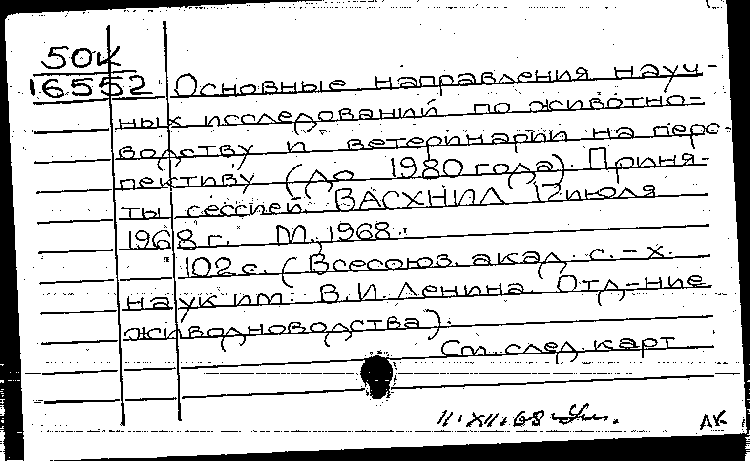 50К
16552
Основные направления науч-
ных исследований по животно-
водству и ветеринарии на перс-
пективу (до 1980 года). Приня-
ты сессией ВАСХНИЛ 12 июля
1968 г. М., 1968.
102 с. (Всесоюз. акад. с.-х.
наук им. В.И. Ленина. Отд-ние
животноводства).
См. след. карт
11.XII.68
ЛК